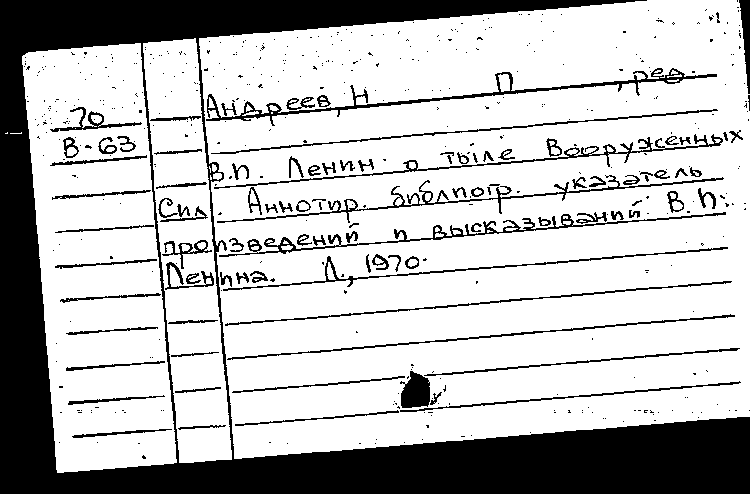 70
В-63
Андреев, Н П , ред.
В.И. Ленин о тыле Вооруженных
Сил. Аннотир. библиогр. указатель
произведений и высказываний В.И.
Ленина. Л., 1970.